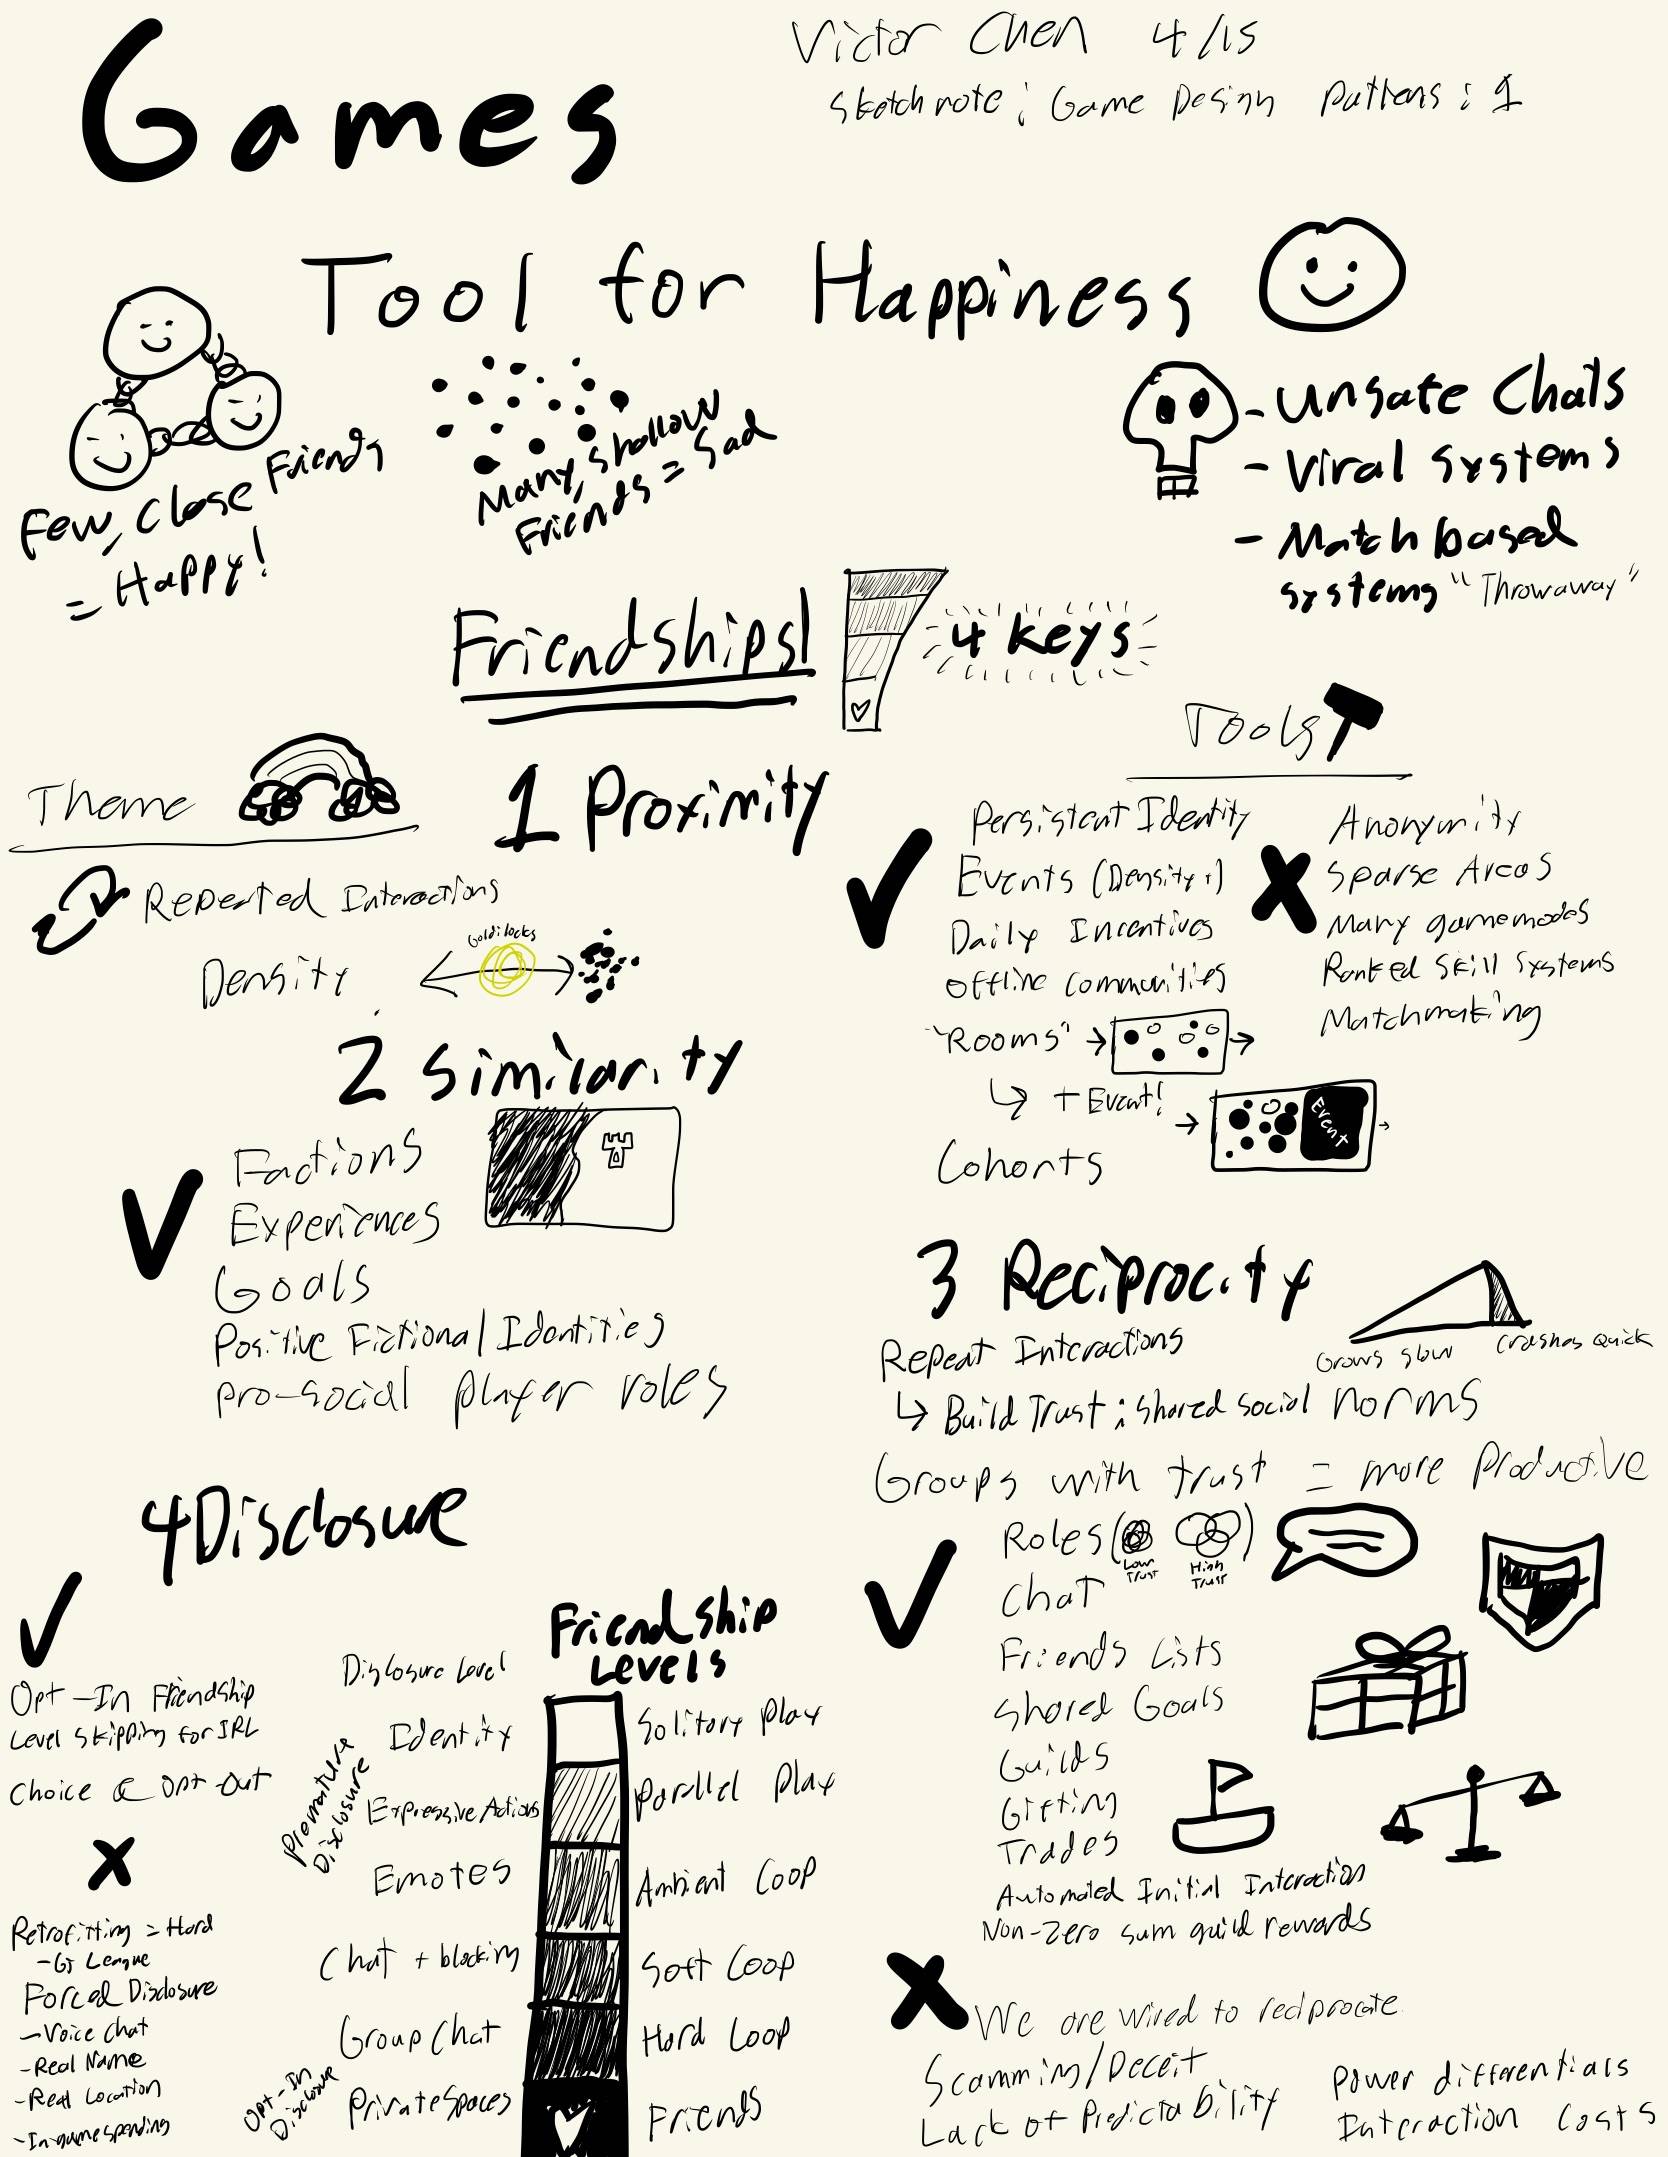 Games
Victor Chen 4/15
Sketchnote: Game Design Patterns: 1
Tool for Happiness
Few, Close Friends
= Happy!
Many, shallow
Friends = Sad
- Unsafe Chats
- Viral Systems
- Match based
systems "Throwaway"
Friendships!
4 keys
Theme
1 Proximity
Repeated Interactions
Goldilocks
Density
Tools
Persistent Identity
Events (Density+)
Daily Incentives
Offline Communities
"Rooms"
+ Event!
Event
Cohorts
Anonymity
Sparse Areas
Many gamemodes
Ranked Skill Systems
Matchmaking
2 Similarity
Factions
Experiences
Goals
Positive Fictional Identities
pro-social player roles
3 Reciprocity
Grows slow
Crashes quick
Repeat Interactions
Build Trust; shared social norms
Groups with trust = more productive
Roles (
Low
Trust
High
Trust
)
Chat
Friends Lists
Shared Goals
Guilds
Gifting
Trades
Automated Initial Interaction
Non-Zero sum guild rewards
We are wired to reciprocate
Scamming/Deceit
Lack of Predictability
Power differentials
Interaction Costs
4 Disclosure
Opt-In Friendship
Level Skipping for IRL
Choice & Opt-Out
Retrofitting = Hard
- League
Forced Disclosure
- Voice chat
- Real Name
- Real Location
- In-game spending
Friendship
Levels
Disclosure Level
Identity
Expressive Actions
Emotes
Chat + blocking
Group Chat
Private Spaces
Premature
Disclosure
Opt-In
Disclosure
Solitary Play
Parallel Play
Ambient Coop
Soft Coop
Hard Coop
Friends